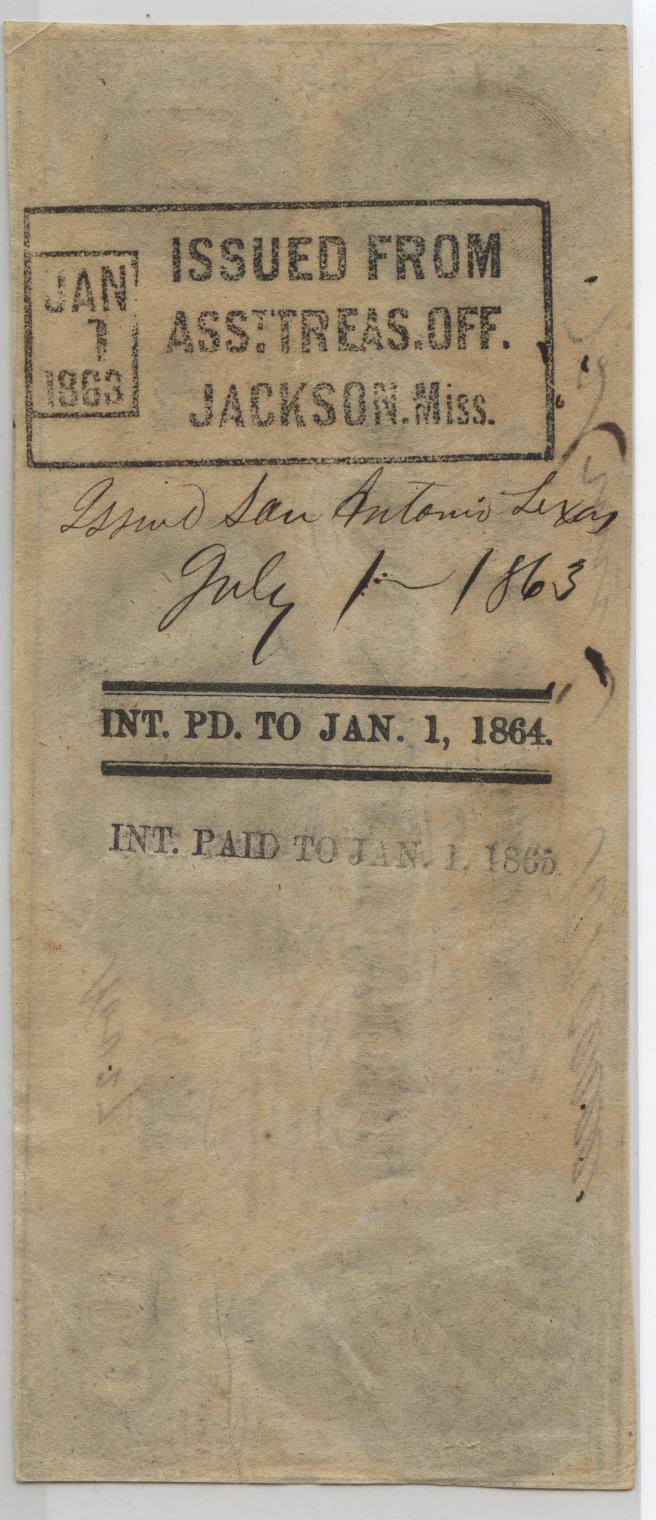 JAN
1
1863
ISSUED FROM
ASST. TREAS. OFF.
JACKSON. Miss.
Issued San Antonio Texas
July 1 1863
INT. PD. TO JAN. 1, 1864.
INT. PAID TO JAN. 1, 1865